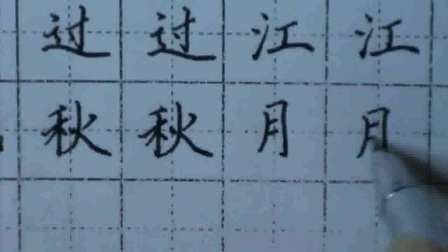 过过江江
秋秋月月